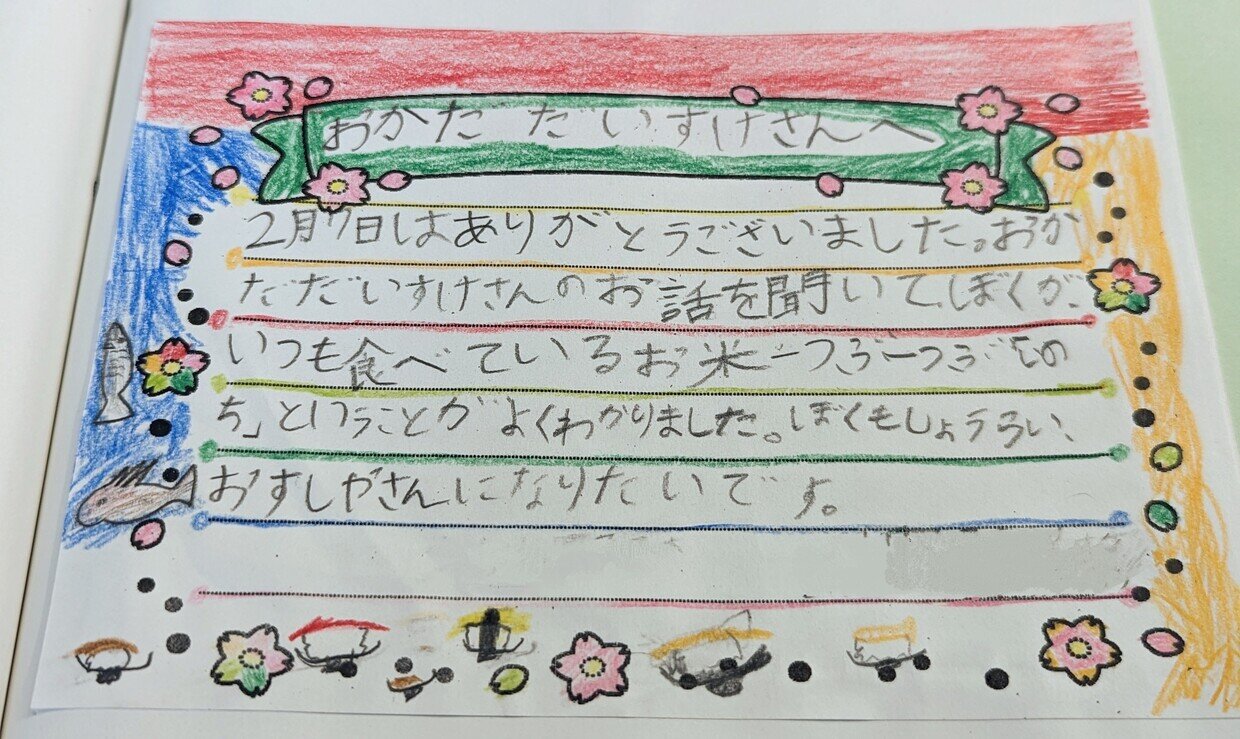 おかだ だいすけさんへ
2月7日はありがとうございました。おか
だだいすけさんのお話を聞いて、ぼくが、
いつも食べているお米一つぶ一つぶ「いの
ち」ということがよくわかりました。ぼくもしょうらい、
おすしやさんになりたいです。